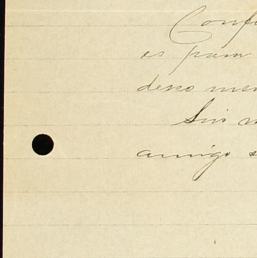 Conf
es para
deseo me
Sin
amigo s